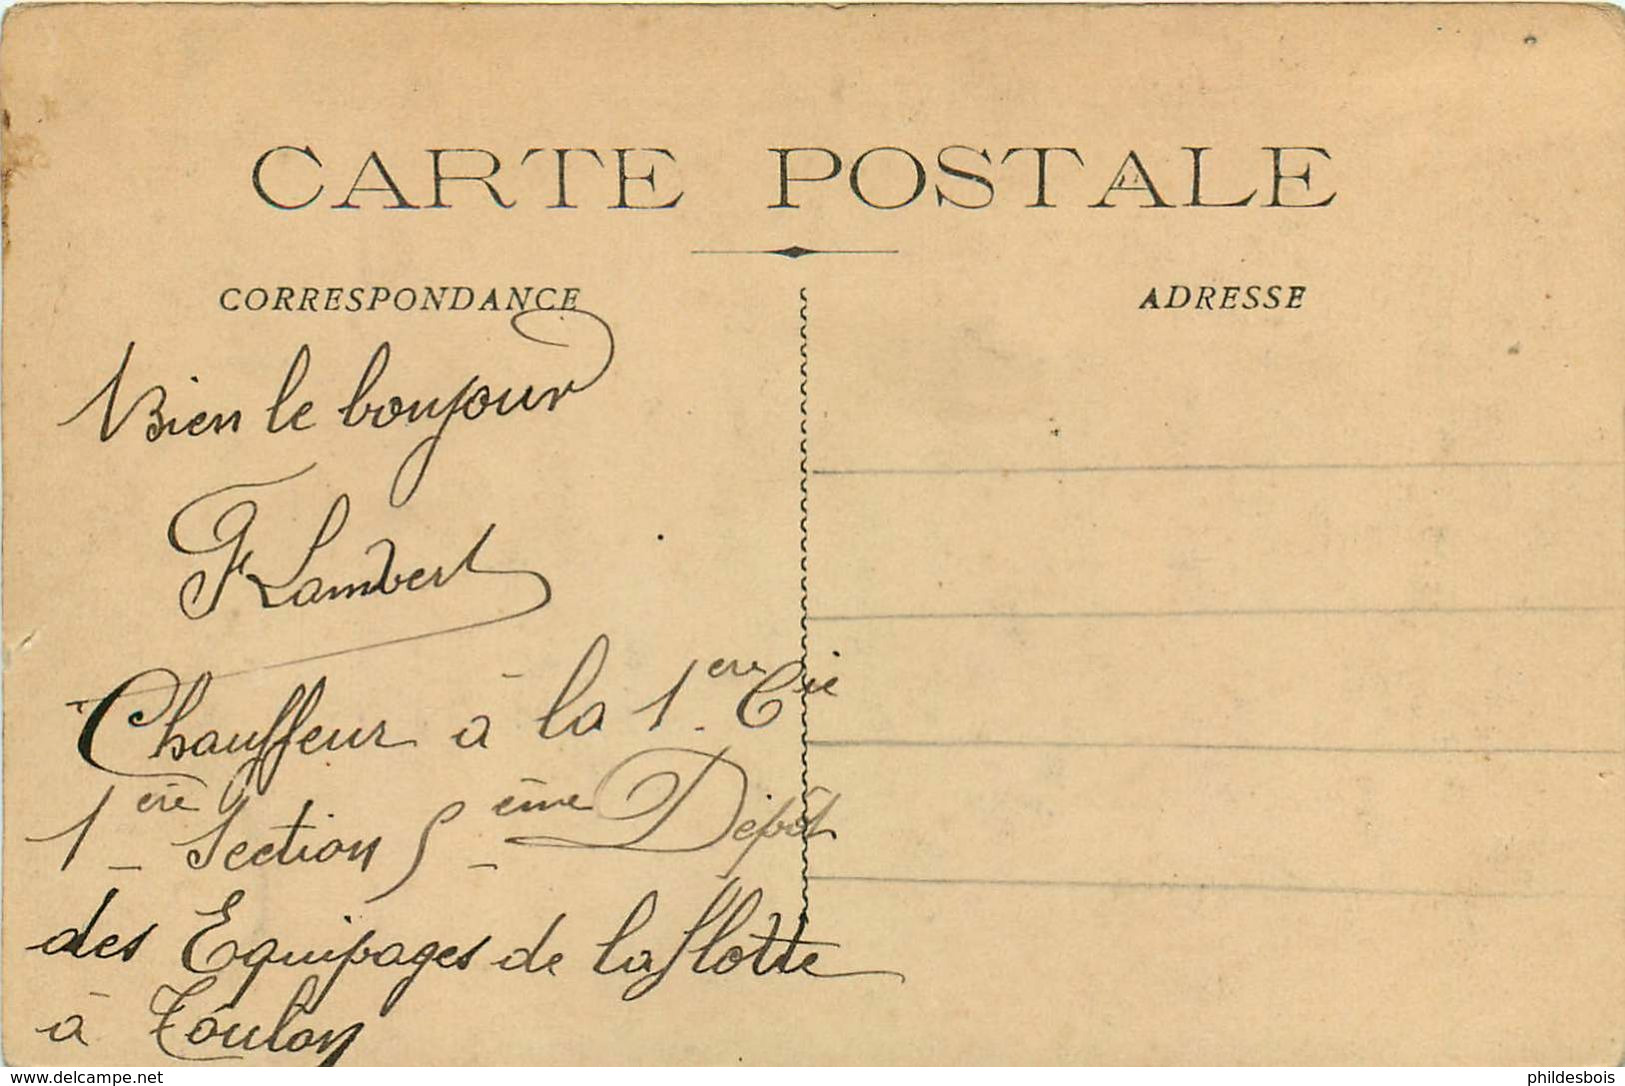 CARTE POSTALE
CORRESPONDANCE
ADRESSE
Bien le bonjour
F Lambert
Chauffeur à la 1ère Cie
1ère Section 5ème Dépôt
des Equipages de la flotte
à Toulon
www.delcampe.net
phildesbois